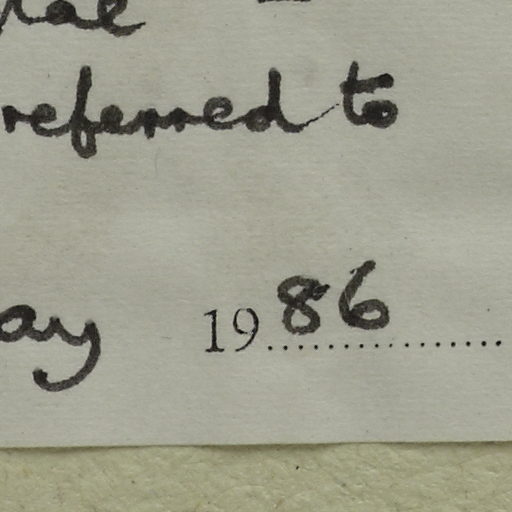 referred to
ay 1986